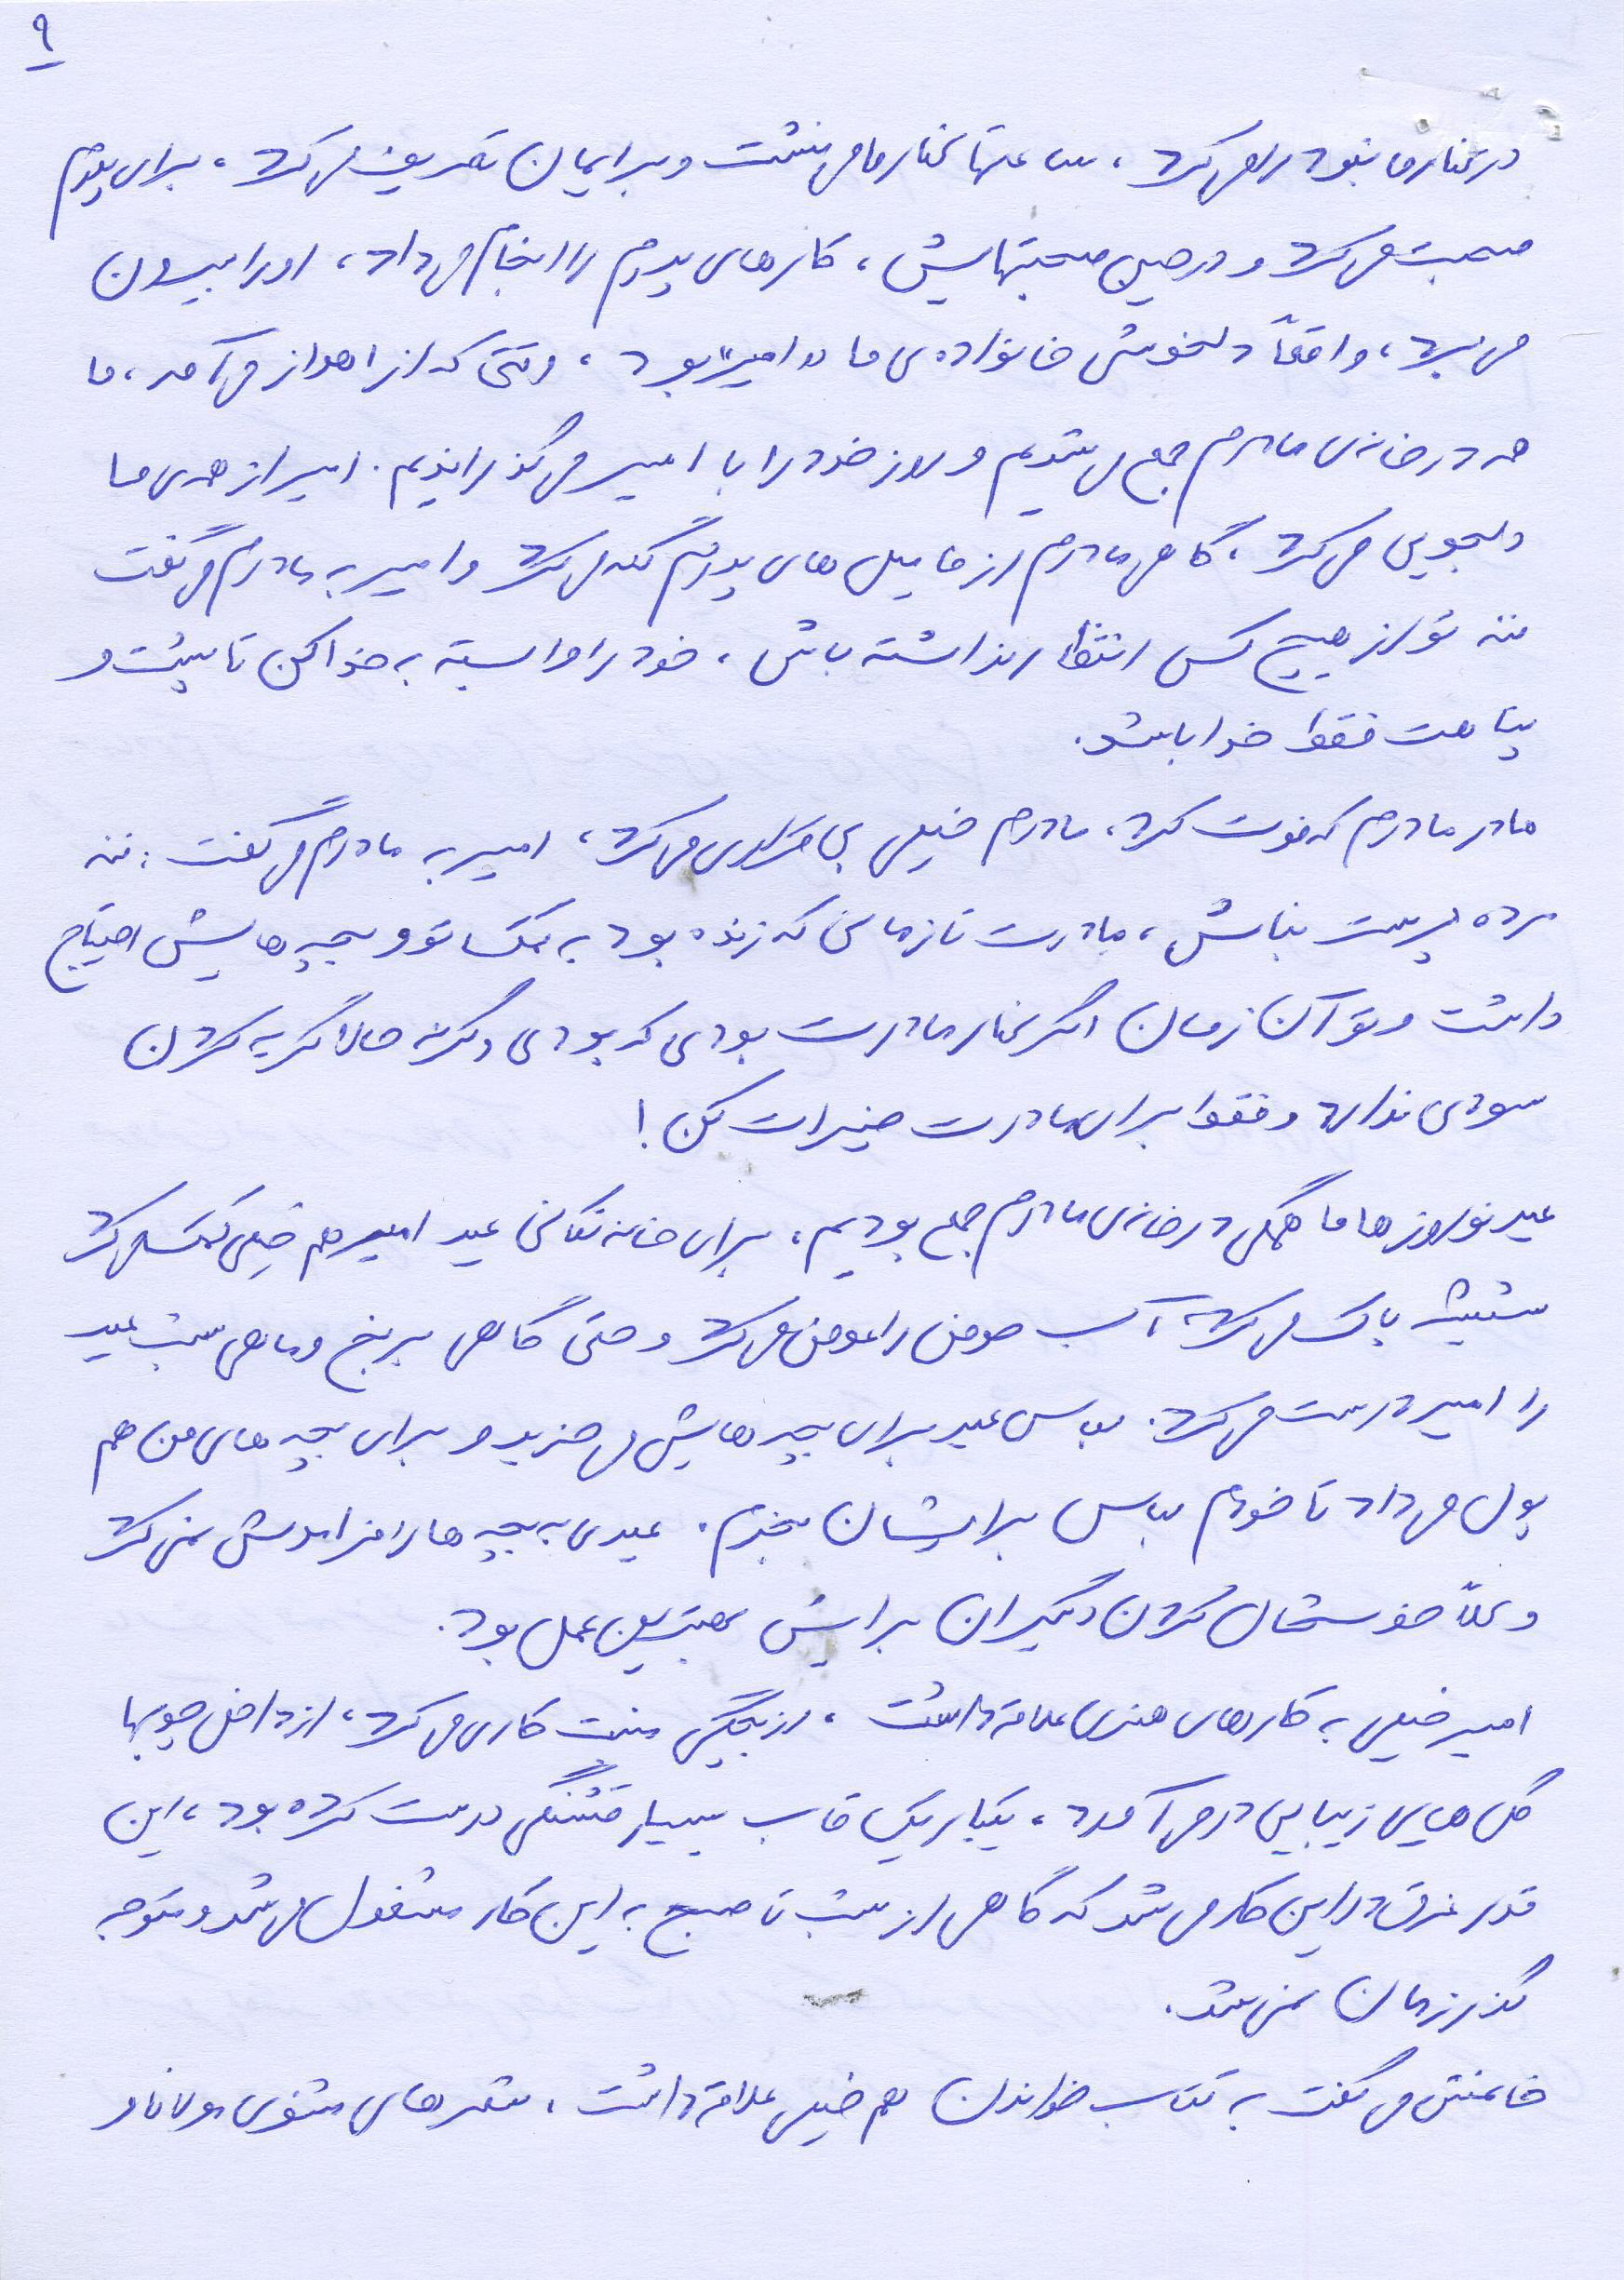 ۹
در کنار ما نبود را می‌کرد، ساعتها کنار ما می‌نشست و برایمان تعریف می‌کرد، برای پدرم
صحبت می‌کرد و در حین صحبتهایش، کارهای پدرم را انجام می‌داد، او را بیرون
می‌برد، واقعاً دلخوشی خانواده‌ی ما «امیر» بود، وقتی که از اهواز می‌آمد، ما
همه در خانه‌ی مادرم جمع می‌شدیم و روز خود را با امیر می‌گذراندیم. امیر از همه‌ی ما
دلجویی می‌کرد، گاهی مادرم از فامیل‌های پدرم گله می‌کرد و امیر به مادرم می‌گفت
ننه تو از هیچ کس انتظار نداشته باش، خود را وابسته به خدا کن تا پشت و
پناهت فقط خدا باشد.
مادر مادرم که فوت کرد، مادرم خیلی بی‌قراری می‌کرد، امیر به مادرم می‌گفت: ننه
مرده پرست نباش، مادرت تا زمانی که زنده بود به کمک تو و بچه‌هایش احتیاج
داشت و تو آن زمان اگر کنار مادرت بودی که بودی وگرنه حالا گریه کردن
سودی ندارد و فقط برای مادرت خیرات کن!
عید نوروزها ما همگی در خانه‌ی مادرم جمع بودیم، برای خانه تکانی عید امیر هم خیلی کمک می‌کرد
شیشه پاک می‌کرد، آب حوض را عوض می‌کرد و حتی گاهی برنج و ماهی شب عید
را امیر درست می‌کرد. لباس عید برای بچه‌هایش می‌خرید و برای بچه‌های من هم
پول می‌داد تا خودم لباس برایشان بخرم. عیدی به بچه‌ها را فراموش نمی‌کرد
و کلاً خوشحال کردن دیگران برایش بهترین عمل بود.
امیر خیلی به کارهای هنری علاقه داشت، از بچگی منبت کاری می‌کرد، از داخل چوبها
گل‌های زیبایی در می‌آورد، یکبار یک قاب بسیار قشنگی درست کرده بود، این
قدر غرق در این کار می‌شد که گاهی از شب تا صبح به این کار مشغول می‌شد و متوجه
گذر زمان نمی‌شد.
خانمش می‌گفت به کتاب خواندن هم خیلی علاقه داشت، شعرهای مثنوی مولانا و